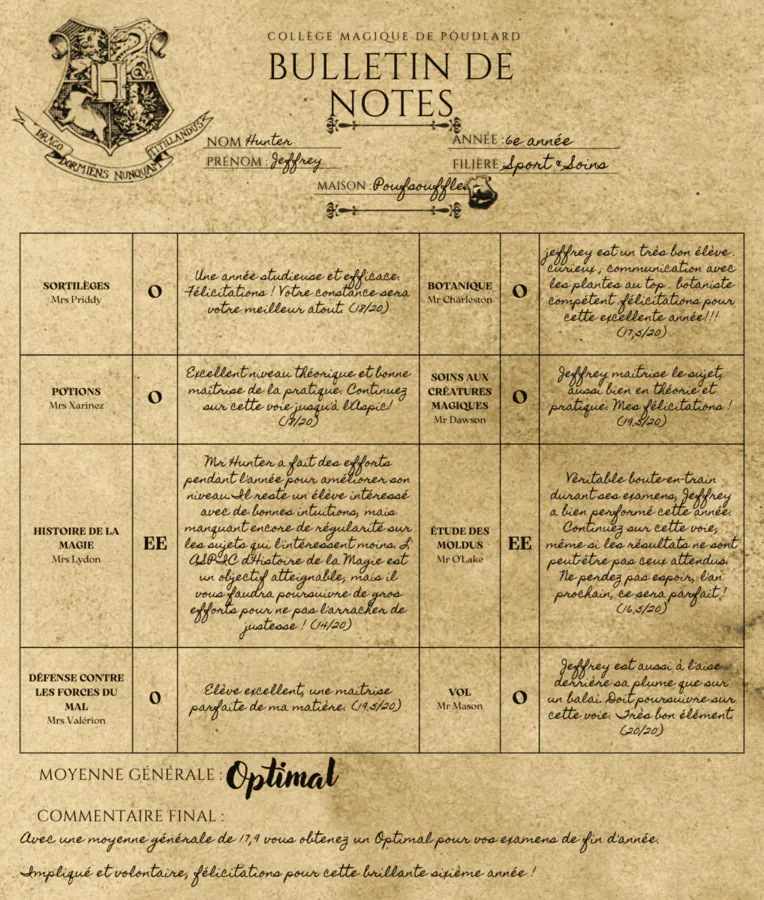 COLLÈGE MAGIQUE DE POUDLARD
BULLETIN DE
NOTES
DRACO
DORMIENS NUNQUAM
TITILLANDUS
NOM Hunter
PRÉNOM : Jeffrey
ANNÉE : 6e année
FILIÈRE Sport & Soins
MAISON : Poufsouffle
SORTILÈGES
Mrs Priddy
O
Une année studieuse et efficace.
Félicitations ! Votre constance sera
votre meilleur atout. (18/20)
BOTANIQUE
Mr Charleston
O
jeffrey est un très bon élève.
curieux, communication avec
les plantes au top. botaniste
compétent. félicitations pour
cette excellente année!!!
(17,5/20)
POTIONS
Mrs Xarinez
O
Excellent niveau théorique et bonne
maîtrise de la pratique. Continuez
sur cette voie jusqu'à l'Aspic!
(18/20)
SOINS AUX
CRÉATURES
MAGIQUES
Mr Dawson
O
Jeffrey maîtrise le sujet,
aussi bien en théorie et
pratique. Mes félicitations !
(19,5/20)
HISTOIRE DE LA
MAGIE
Mrs Lydon
EE
Mr Hunter a fait des efforts
pendant l'année pour améliorer son
niveau. Il reste un élève intéressé
avec de bonnes intuitions, mais
manquant encore de régularité sur
les sujets qui l'intéressent moins. L'
ASPIC d'Histoire de la Magie est
un objectif atteignable, mais il
vous faudra poursuivre de gros
efforts pour ne pas l'arracher de
justesse ! (14/20)
ÉTUDE DES
MOLDUS
Mr O'Lake
EE
Véritable boute-en-train
durant ses examens, Jeffrey
a bien performé cette année.
Continuez sur cette voie,
même si les résultats ne sont
peut-être pas ceux attendus.
Ne perdez pas espoir, l'an
prochain, ce sera parfait !
(16,5/20)
DÉFENSE CONTRE
LES FORCES DU
MAL
Mrs Valérion
O
Elève excellent, une maîtrise
parfaite de ma matière. (19,5/20)
VOL
Mr Mason
O
Jeffrey est aussi à l'aise
derrière sa plume que sur
un balai. Doit poursuivre sur
cette voie. Très bon élément.
(20/20)
MOYENNE GÉNÉRALE : Optimal
COMMENTAIRE FINAL :
Avec une moyenne générale de 17,9 vous obtenez un Optimal pour vos examens de fin d'année.
Impliqué et volontaire, félicitations pour cette brillante sixième année !